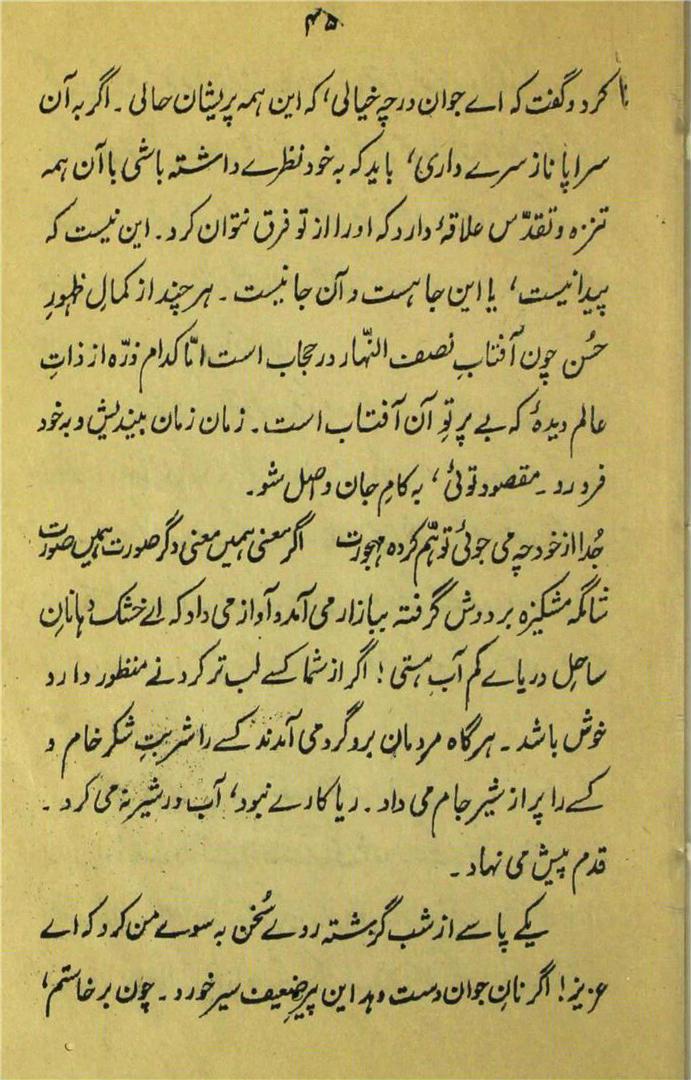 ۴۵
کرد و گفت که اے جوان درچه خیالی، که این همه پریشان حالی۔ اگر به آن
سراپا ناز سرے داری، باید که به خود نظرے داشته باشی با آن همه
تنزه و تقدّس علاقۂ دارد که او را از تو فرق نتوان کرد۔ این نیست که
پیدا نیست، یا این جا هست و آن جا نیست۔ هر چند از کمالِ ظهورِ
حُسن چون آفتابِ نصف النّهار در حجاب است امّا کدام ذرّه از ذاتِ
عالم دیدۂ که بے پرتوِ آن آفتاب است۔ زمان زمان بیندیش و به خود
فرو رو۔ مقصود توئی، به کامِ جان واصل شو۔
جُدا از خود چه می جوئی توهّم کرده مهجورت اگر معنی همیں معنی وگر صورت همیں صورت
شامگه مشکیزه بر دوش گرفته ببازار می آمد و آواز می داد که اے خشک دهانانِ
ساحلِ دریاے کم آبِ هستی! اگر از شما کسے لب تر کردنے منظور دارد
خوش باشد۔ هر گاه مردمان برو گرد می آمدند کسے را شربتِ شکرِ خام و
کسے را پر از شیر جام می داد۔ ریا کارے نبود، آب در شیر نه می کرد۔
قدم پیش می نهاد۔
یکے پاسے از شب گزشته روے سُخن به سوے من کرد که اے
عزیز! اگر نانِ جوان دست دهد این پیرِ ضعیف سیر خورد۔ چون برخاستم،